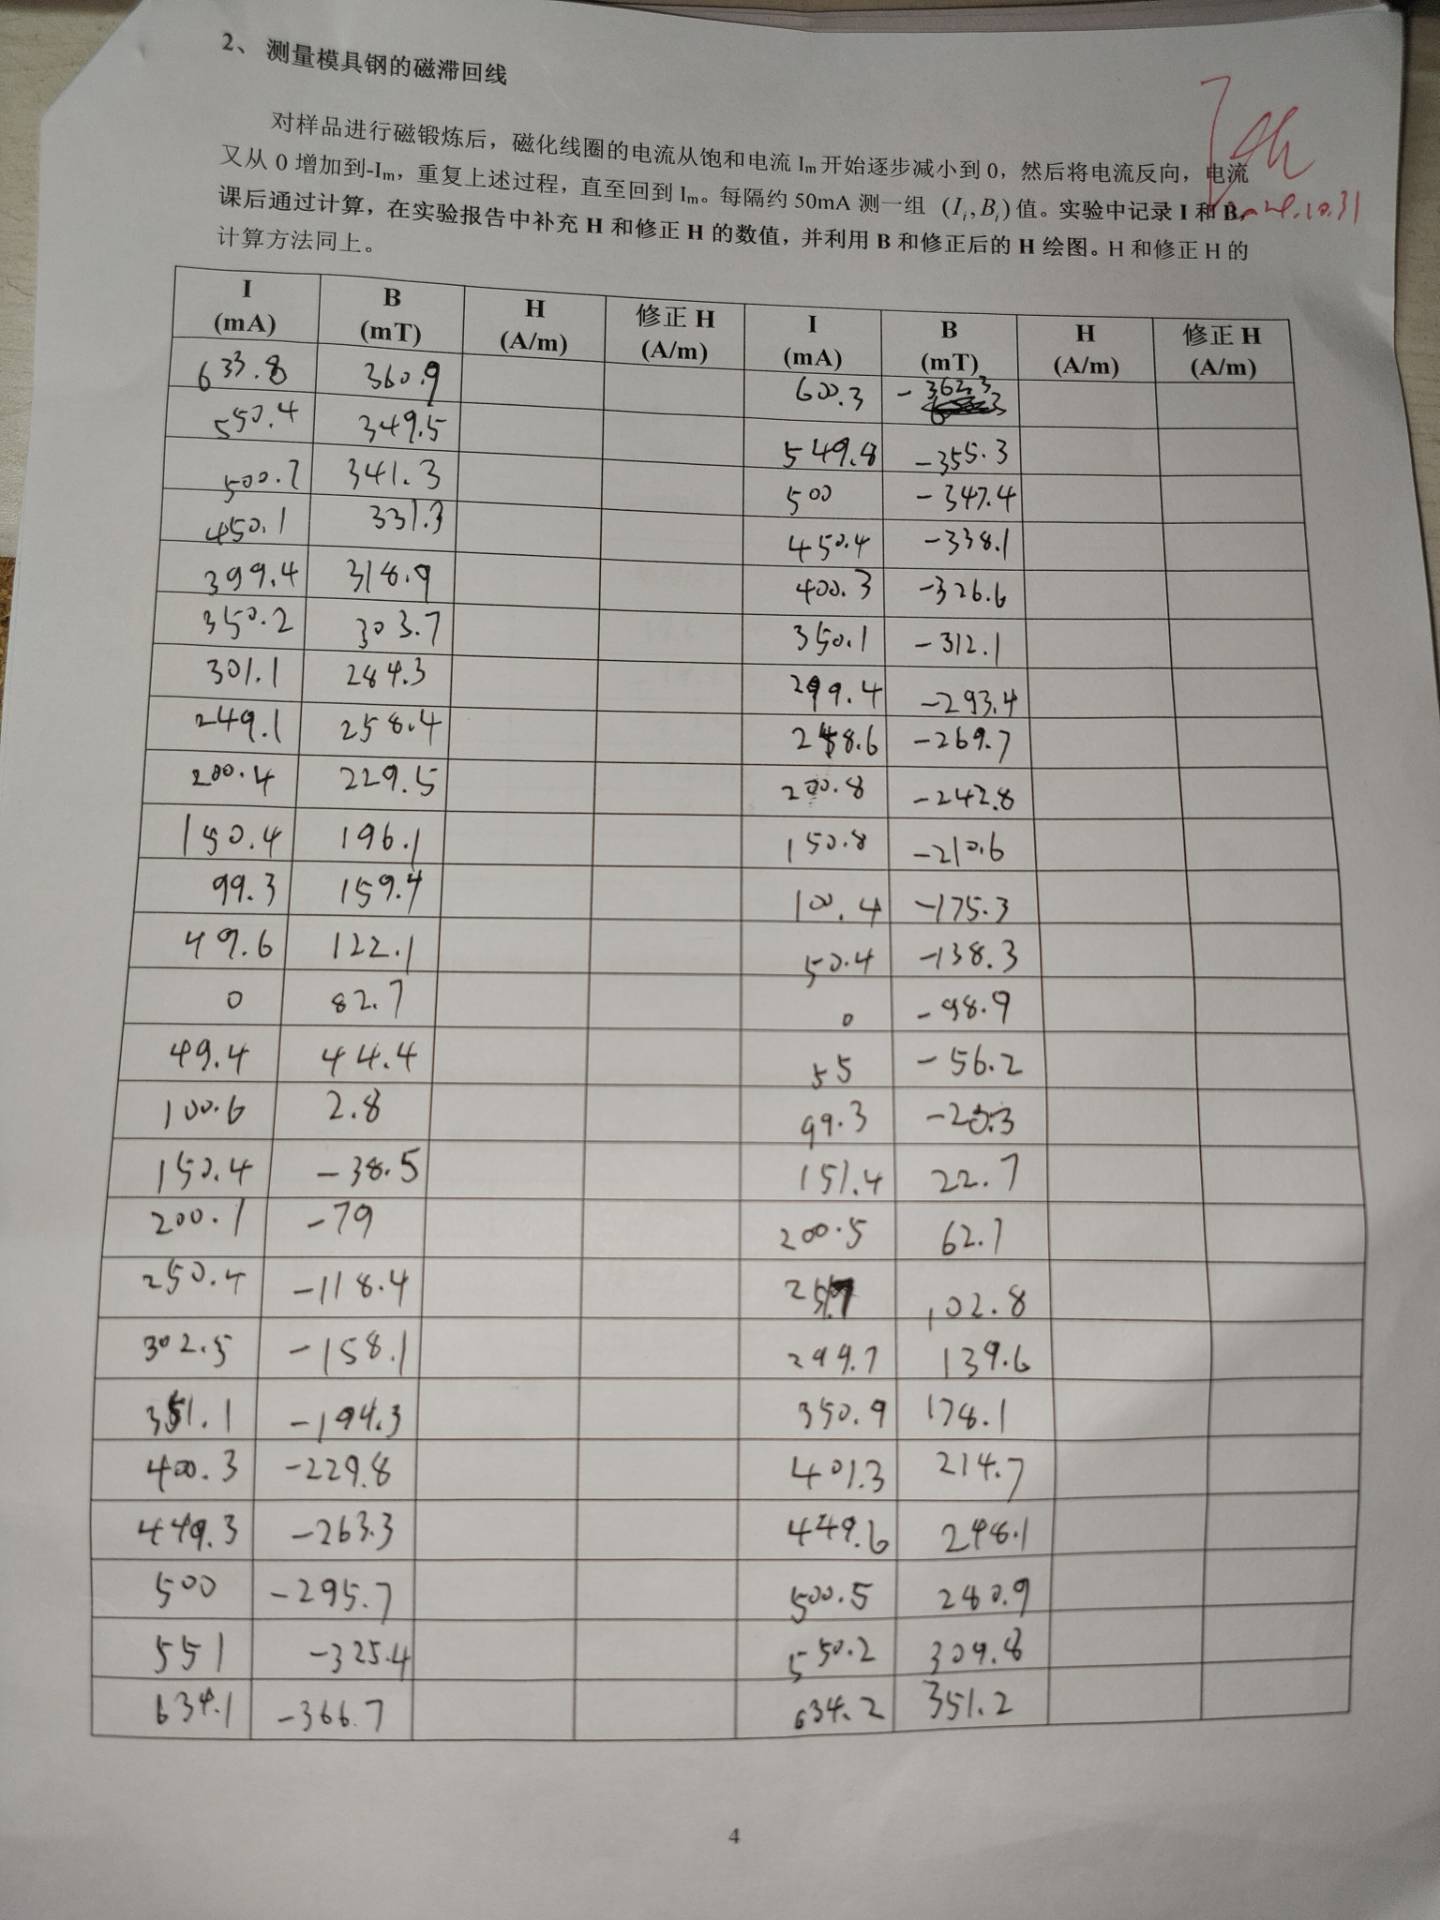 2、 测量模具钢的磁滞回线
对样品进行磁锻炼后，磁化线圈的电流从饱和电流 Im 开始逐步减小到 0，然后将电流反向，电流
又从 0 增加到-Im，重复上述过程，直至回到 Im。每隔约 50mA 测一组 (Ii,Bi) 值。实验中记录 I 和 B，
课后通过计算，在实验报告中补充 H 和修正 H 的数值，并利用 B 和修正后的 H 绘图。H 和修正 H 的
计算方法同上。
I (mA) B (mT) H (A/m) 修正 H (A/m) I (mA) B (mT) H (A/m) 修正 H (A/m)
633.8 360.9 600.3 -362.3
550.4 349.5 549.8 -355.3
500.7 341.3 500 -347.4
450.1 331.3 450.4 -338.1
399.4 318.9 400.3 -326.6
350.2 303.7 350.1 -312.1
301.1 284.3 299.4 -293.4
249.1 258.4 248.6 -269.7
200.4 229.5 200.8 -242.8
150.4 196.1 150.8 -210.6
99.3 159.4 100.4 -175.3
49.6 122.1 50.4 -138.3
0 82.7 0 -98.9
49.4 44.4 55 -56.2
100.6 2.8 99.3 -20.3
150.4 -38.5 151.4 22.7
200.1 -79 200.5 62.7
250.4 -118.4 102.8
302.5 -158.1 299.7 139.6
351.1 -194.3 350.9 178.1
400.3 -229.8 401.3 214.7
449.3 -263.3 449.6 248.1
500 -295.7 500.5 280.9
551 -325.4 550.2 309.8
634.1 -366.7 634.2 351.2
4